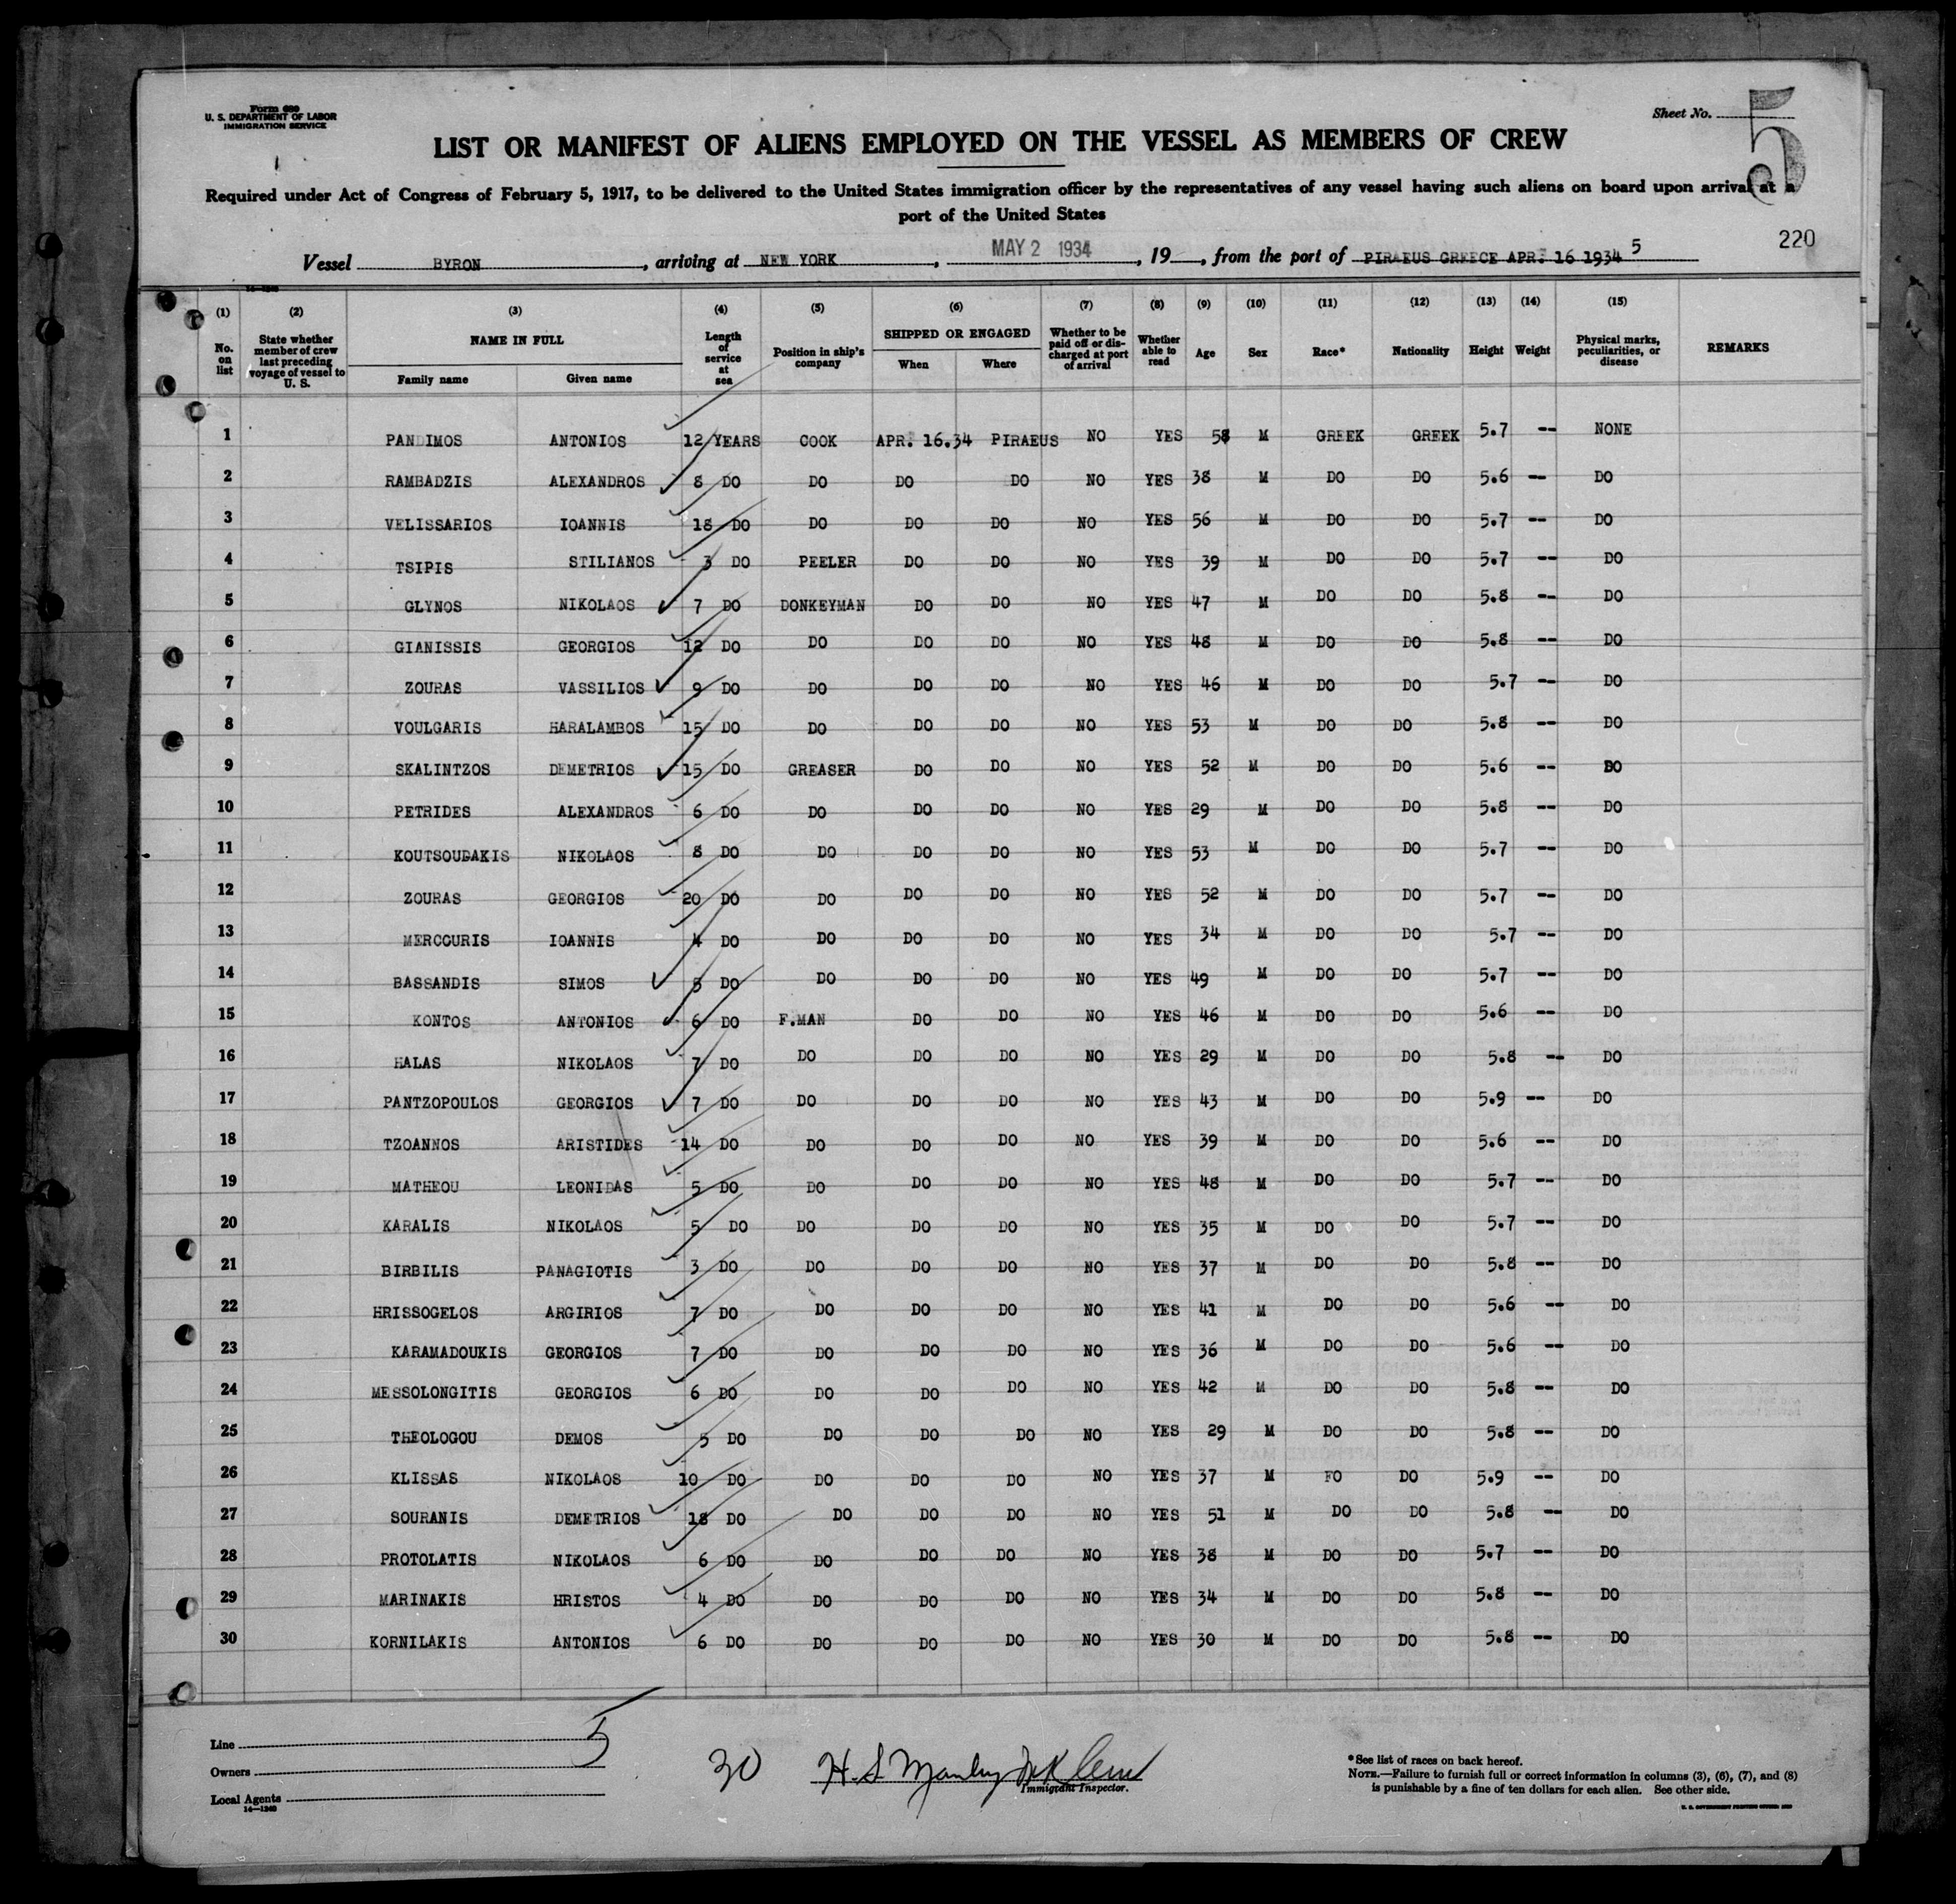 Form 680
U. S. DEPARTMENT OF LABOR
IMMIGRATION SERVICE
Sheet No. 5
LIST OR MANIFEST OF ALIENS EMPLOYED ON THE VESSEL AS MEMBERS OF CREW
Required under Act of Congress of February 5, 1917, to be delivered to the United States immigration officer by the representatives of any vessel having such aliens on board upon arrival at a
port of the United States
220
Vessel BYRON, arriving at NEW YORK, MAY 2 1934, 19, from the port of PIRAEUS GREECE APR. 16 1934 5
14—1240
(1) (2) (3) (4) (5) (6) (7) (8) (9) (10) (11) (12) (13) (14) (15)
No. on list State whether member of crew last preceding voyage of vessel to U. S. NAME IN FULL Family name Given name Length of service at sea Position in ship's company SHIPPED OR ENGAGED When Where Whether to be paid off or discharged at port of arrival Whether able to read Age Sex Race* Nationality Height Weight Physical marks, peculiarities, or disease REMARKS
1 PANDIMOS ANTONIOS 12 YEARS COOK APR. 16.34 PIRAEUS NO YES 58 M GREEK GREEK 5.7 -- NONE
2 RAMBADZIS ALEXANDROS 8 DO DO DO DO NO YES 38 M DO DO 5.6 -- DO
3 VELISSARIOS IOANNIS 18 DO DO DO DO NO YES 56 M DO DO 5.7 -- DO
4 TSIPIS STILIANOS 3 DO PEELER DO DO NO YES 39 M DO DO 5.7 -- DO
5 GLYNOS NIKOLAOS 7 DO DONKEYMAN DO DO NO YES 47 M DO DO 5.8 -- DO
6 GIANISSIS GEORGIOS 12 DO DO DO DO NO YES 48 M DO DO 5.8 -- DO
7 ZOURAS VASSILIOS 9 DO DO DO DO NO YES 46 M DO DO 5.7 -- DO
8 VOULGARIS HARALAMBOS 15 DO DO DO DO NO YES 53 M DO DO 5.8 -- DO
9 SKALINTZOS DEMETRIOS 15 DO GREASER DO DO NO YES 52 M DO DO 5.6 -- DO
10 PETRIDES ALEXANDROS 6 DO DO DO DO NO YES 29 M DO DO 5.8 -- DO
11 KOUTSOUDAKIS NIKOLAOS 8 DO DO DO DO NO YES 53 M DO DO 5.7 -- DO
12 ZOURAS GEORGIOS 20 DO DO DO DO NO YES 52 M DO DO 5.7 -- DO
13 MERCOURIS IOANNIS 4 DO DO DO DO NO YES 34 M DO DO 5.7 -- DO
14 BASSANDIS SIMOS 5 DO DO DO DO NO YES 49 M DO DO 5.7 -- DO
15 KONTOS ANTONIOS 6 DO F.MAN DO DO NO YES 46 M DO DO 5.6 -- DO
16 HALAS NIKOLAOS 7 DO DO DO DO NO YES 29 M DO DO 5.8 -- DO
17 PANTZOPOULOS GEORGIOS 7 DO DO DO DO NO YES 43 M DO DO 5.9 -- DO
18 TZOANNOS ARISTIDES 14 DO DO DO DO NO YES 39 M DO DO 5.6 -- DO
19 MATHEOU LEONIDAS 5 DO DO DO DO NO YES 48 M DO DO 5.7 -- DO
20 KARALIS NIKOLAOS 5 DO DO DO DO NO YES 35 M DO DO 5.7 -- DO
21 BIRBILIS PANAGIOTIS 3 DO DO DO DO NO YES 37 M DO DO 5.8 -- DO
22 HRISSOGELOS ARGIRIOS 7 DO DO DO DO NO YES 41 M DO DO 5.6 -- DO
23 KARAMADOUKIS GEORGIOS 7 DO DO DO DO NO YES 36 M DO DO 5.6 -- DO
24 MESSOLONGITIS GEORGIOS 6 DO DO DO DO NO YES 42 M DO DO 5.8 -- DO
25 THEOLOGOU DEMOS 5 DO DO DO DO NO YES 29 M DO DO 5.8 -- DO
26 KLISSAS NIKOLAOS 10 DO DO DO DO NO YES 37 M FO DO 5.9 -- DO
27 SOURANIS DEMETRIOS 18 DO DO DO DO NO YES 51 M DO DO 5.8 -- DO
28 PROTOLATIS NIKOLAOS 6 DO DO DO DO NO YES 38 M DO DO 5.7 -- DO
29 MARINAKIS HRISTOS 4 DO DO DO DO NO YES 34 M DO DO 5.8 -- DO
30 KORNILAKIS ANTONIOS 6 DO DO DO DO NO YES 30 M DO DO 5.8 -- DO
Line 5
Owners
Local Agents
14—1240
30
H. S. Manley
Immigrant Inspector.
*See list of races on back hereof.
NOTE.—Failure to furnish full or correct information in columns (3), (6), (7), and (8)
is punishable by a fine of ten dollars for each alien. See other side.